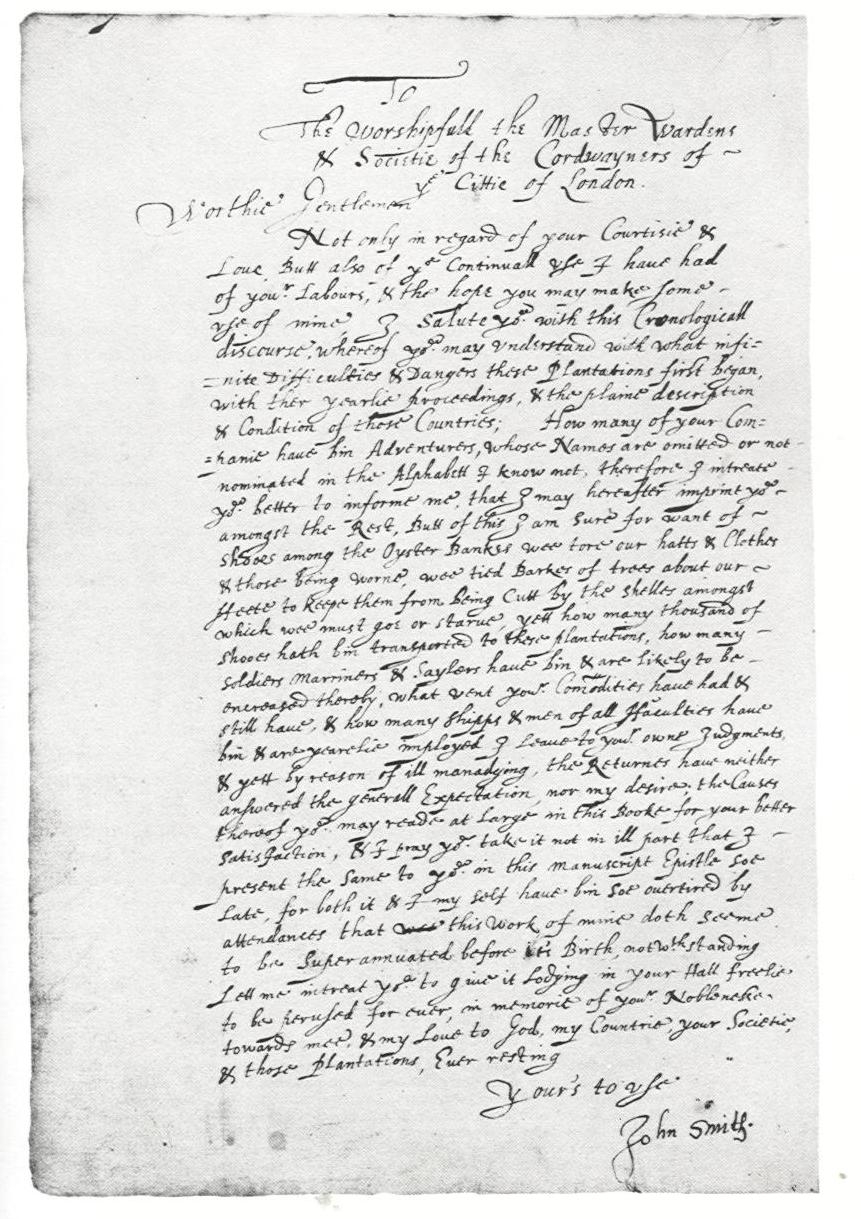 To
The Worshipfull the Master Wardens
& Societie of the Cordwayners of ~
yᵉ Cittie of London.
Worthie Gentlemen
Not only in regard of your Courtisie &
Love, Butt also of yᵉ Continuall vse I have had
of yowʳ Labours, & the hope you may make some -
vse of mine I salute yoʷ with this Cronologicall
discourse, whereof yoʷ may vnderstand with what infi=
=nite Difficulties & Dangers these Plantations first began,
with ther yearlie proceedings, & the plaine description
& Condition of those Countries; How many of your Com=
=panie have bin Adventurers, whose Names are omitted or not -
nominated in the Alphabett I know not, therefore I intreate -
yoʷ better to informe me, that I may hereafter imprint yoʷ -
amongst the Rest, Butt of this I am sure for want of ~
shooes among the Oyster Bankes wee tore our hatts & Clothes
& those being worne, wee tied Barkes of trees about our ~
ffeete to keepe them from being Cutt by the shelles amongst
which wee must goe or starue, yett how many thousand of
shooes hath bin transported to these plantations, how many -
soldiers Marriners & Saylers have bin & are likely to be -
encreased thereby, what vent yowʳ Comodities have had &
still have, & how many shipps & men of all ffaculties have
bin & are yearelie imployed I leave to yowʳ owne Judgments,
& yett by reason of ill manadying, the Returnes have neither
answered the generall Expectation, nor my desire; the Causes
thereof yoʷ may reade at Large in this Booke for your better
satisfaction, & I pray yoʷ take it not in ill part that I -
present the same to yoʷ in this manuscript Epistle soe
Late, for both it & I my self have bin soe overtired by
attendances that this work of mine doth seeme
to be Superannuated before it's Birth, notwᵗʰstanding
Lett me intreat yoʷ to give it Lodging in your Hall freelie
to be perused for euer, in memorie of yowʳ Noblenesse
towards mee, & my Love to God, my Countrie, your Societie,
& those Plantations, Ever resting
Your's to vse
John Smith.